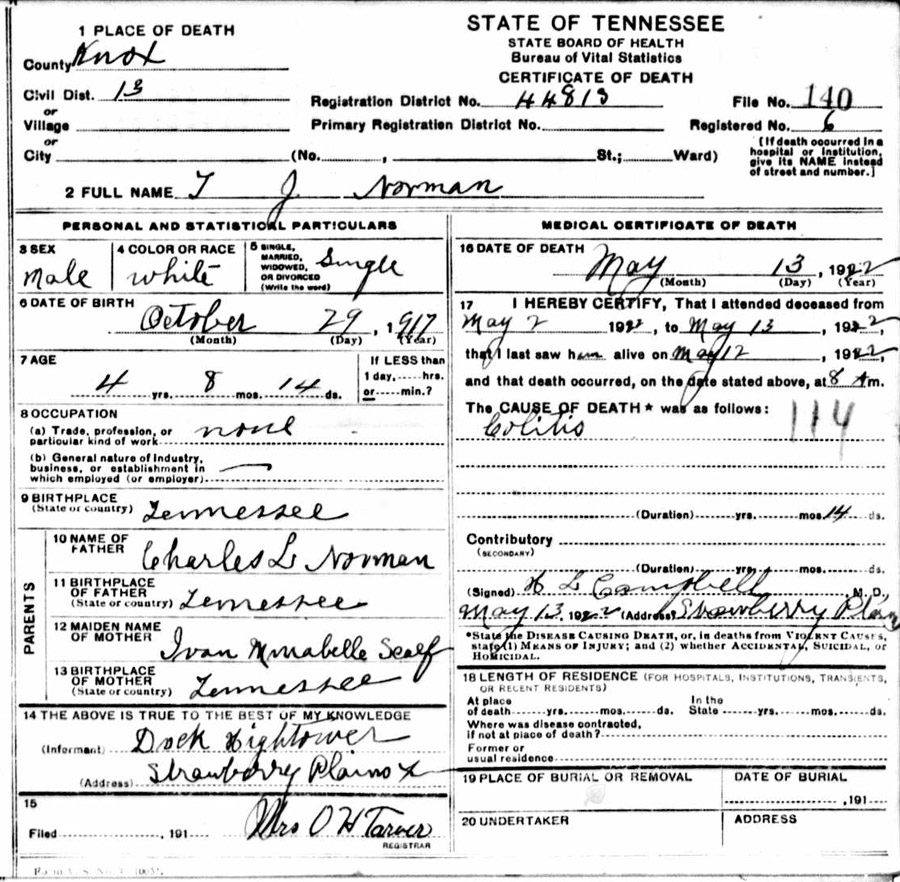 STATE OF TENNESSEE
STATE BOARD OF HEALTH
Bureau of Vital Statistics
CERTIFICATE OF DEATH
1 PLACE OF DEATH
County Knox
Civil Dist. 13
or
Village
or
City (No. , St.; Ward)
Registration District No. 44813 File No. 140
Primary Registration District No. Registered No. 6
[If death occurred in a hospital or institution, give its NAME instead of street and number.]
2 FULL NAME T J Norman
PERSONAL AND STATISTICAL PARTICULARS
3 SEX Male
4 COLOR OR RACE white
5 SINGLE, MARRIED, WIDOWED, OR DIVORCED (Write the word) Single
6 DATE OF BIRTH
October 29, 1917
(Month) (Day) (Year)
7 AGE
4 yrs. 8 mos. 14 ds.
If LESS than
1 day, hrs.
or min.?
8 OCCUPATION
(a) Trade, profession, or
particular kind of work none
(b) General nature of industry,
business, or establishment in
which employed (or employer)
9 BIRTHPLACE
(State or country) Tennessee
PARENTS
10 NAME OF
FATHER Charles L Norman
11 BIRTHPLACE
OF FATHER
(State or country) Tennessee
12 MAIDEN NAME
OF MOTHER Ivan Scalf
13 BIRTHPLACE
OF MOTHER
(State or country) Tennessee
14 THE ABOVE IS TRUE TO THE BEST OF MY KNOWLEDGE
(Informant) Dock Hightower
(Address) Strawberry Plains
15
Filed , 191 Mrs O H Tarver
REGISTRAR
MEDICAL CERTIFICATE OF DEATH
16 DATE OF DEATH
May 13, 1922
(Month) (Day) (Year)
17 I HEREBY CERTIFY, That I attended deceased from
May 2 1922, to May 13, 1922,
that I last saw him alive on May 12, 1922,
and that death occurred, on the date stated above, at 8 A m.
The CAUSE OF DEATH * was as follows: 114
Colitis
(Duration) yrs. mos. 14 ds.
Contributory
(SECONDARY)
(Duration) yrs. mos. ds.
(Signed) H L Campbell M. D.
May 13, 1922 (Address) Strawberry Plains
*State the DISEASE CAUSING DEATH, or, in deaths from VIOLENT CAUSES,
state (1) MEANS OF INJURY; and (2) whether ACCIDENTAL, SUICIDAL, or
HOMICIDAL.
18 LENGTH OF RESIDENCE (FOR HOSPITALS, INSTITUTIONS, TRANSIENTS,
OR RECENT RESIDENTS)
At place In the
of death yrs. mos. ds. State yrs. mos. ds.
Where was disease contracted,
if not at place of death?
Former or
usual residence
19 PLACE OF BURIAL OR REMOVAL
DATE OF BURIAL
, 191
20 UNDERTAKER
ADDRESS